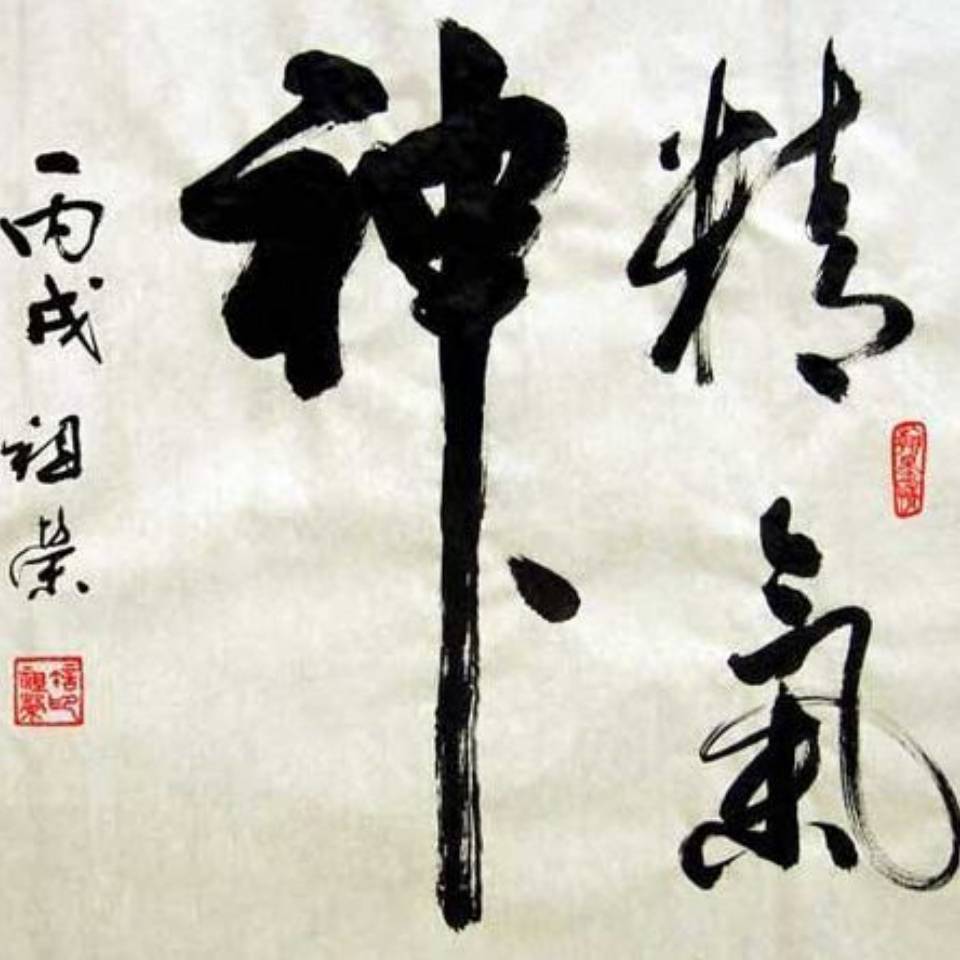 精氣
神
丙戌 祖榮